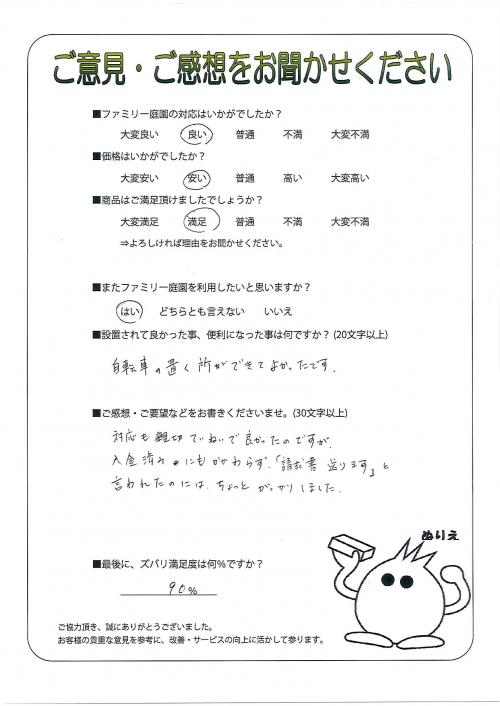 ご意見・ご感想をお聞かせください
■ファミリー庭園の対応はいかがでしたか?
大変良い 良い 普通 不満 大変不満
■価格はいかがでしたか?
大変安い 安い 普通 高い 大変高い
■商品はご満足頂けましたでしょうか?
大変満足 満足 普通 不満 大変不満
⇒よろしければ理由をお聞かせください。
■またファミリー庭園を利用したいと思いますか?
はい どちらとも言えない いいえ
■設置されて良かった事、便利になった事は何ですか? (20文字以上)
自転車の置く所ができてよかったです.
■ご感想・ご要望などをお書きくださいませ。(30文字以上)
対応も親切ていねいで良かったのですが、
入金済みにもかかわらず.「請求書送ります」と
言われたのには、ちょっとがっかりしました.
ぬりえ
■最後に、ズバリ満足度は何%ですか?
90%
ご協力頂き、誠にありがとうございました。
お客様の貴重な意見を参考に、改善・サービスの向上に活かして参ります。